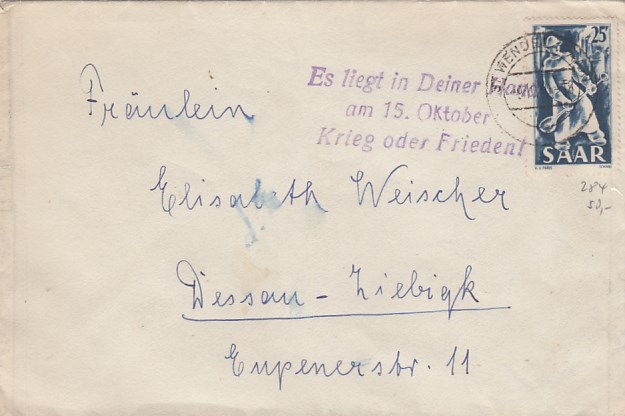 25F
SAAR
Es liegt in Deiner
am 15. Oktober
Krieg oder Frieden!
ST. WENDEL
Fräulein
Elisabeth Weischer
284
50,-
Dessau - Ziebigk
Eupenerstr. 11